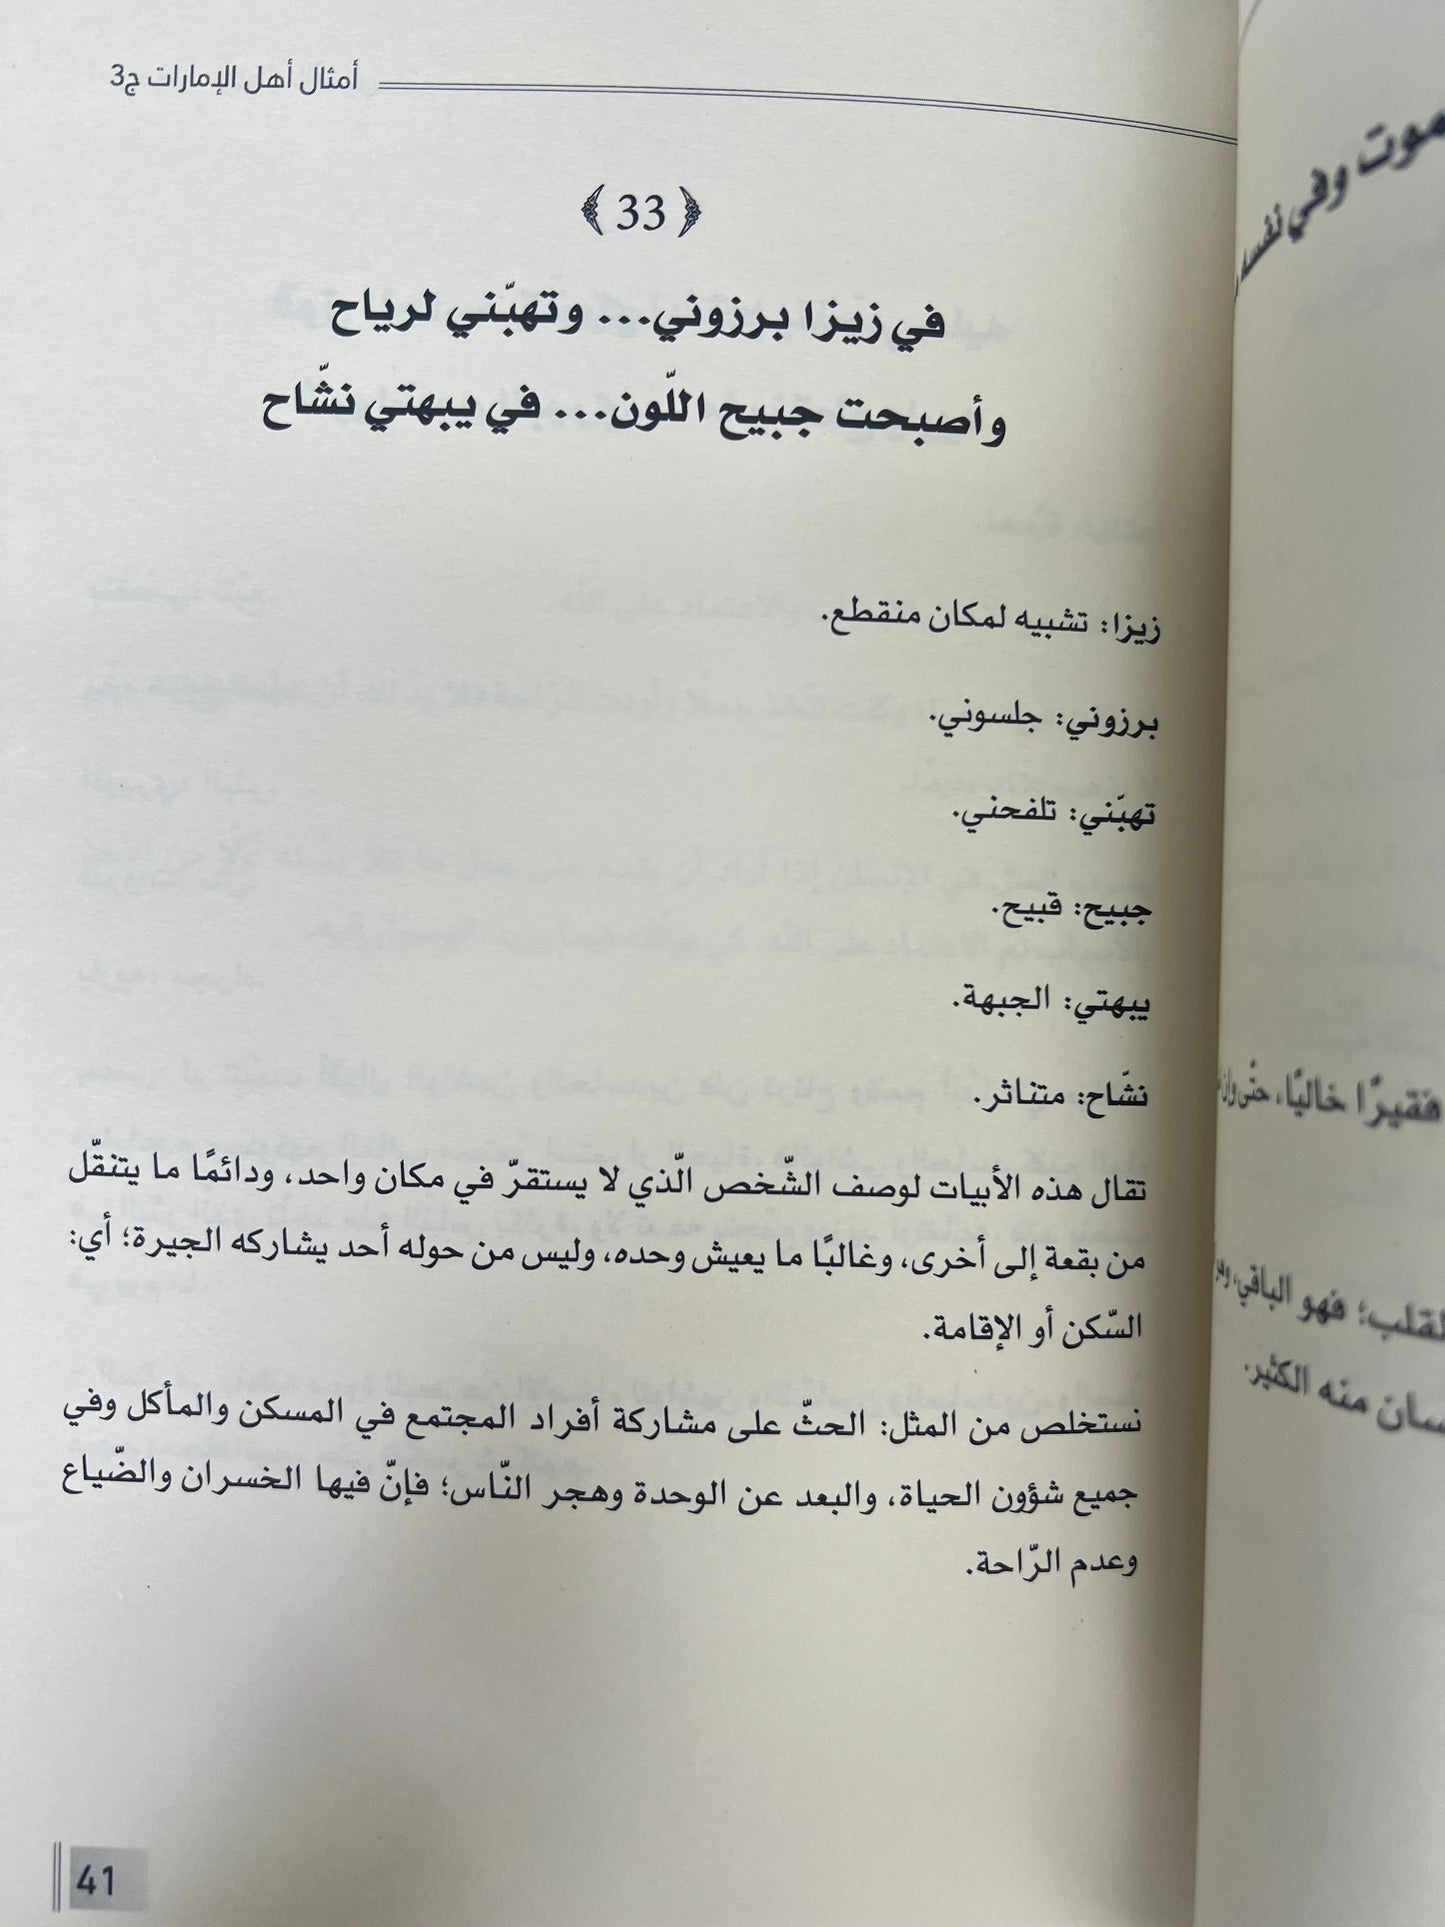 أمثال أهل الإمارات ج3
﴿33﴾
في زيزا برزوني... وتهبّني لرياح
وأصبحت جبيح اللّون... في يبهتي نشّاح
زيزا: تشبيه لمكان منقطع.
برزوني: جلسوني.
تهبّني: تلفحني.
جبيح: قبيح.
يبهتي: الجبهة.
نشّاح: متناثر.
تقال هذه الأبيات لوصف الشّخص الّذي لا يستقرّ في مكان واحد، ودائمًا ما يتنقّل
من بقعة إلى أخرى، وغالبًا ما يعيش وحده، وليس من حوله أحد يشاركه الجيرة؛ أي:
السّكن أو الإقامة.
نستخلص من المثل: الحثّ على مشاركة أفراد المجتمع في المسكن والمأكل وفي
جميع شؤون الحياة، والبعد عن الوحدة وهجر النّاس؛ فإنّ فيها الخسران والضّياع
وعدم الرّاحة.
41
وفي نفسه
فقيرًا خاليًا، حتّى وإن
فهو الباقي،
منه الكثير.